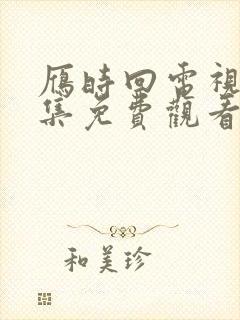 雁時回電視
集免費觀看
和美珍